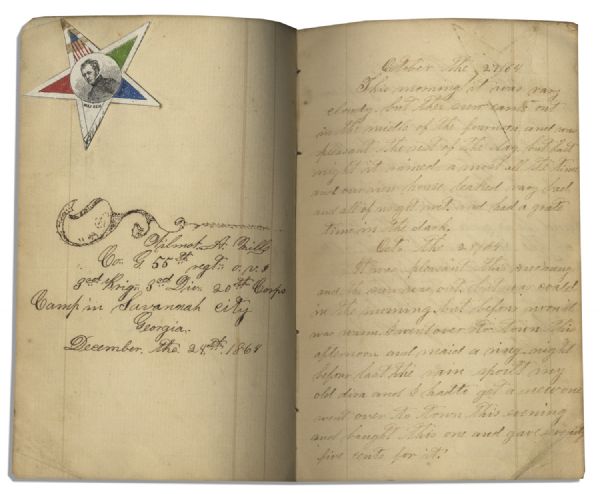 Wilmot A. Mills
Co. G 55th regt. o. v. I
3rd Brig. 3rd Div. 20th Corps
Camp in Savannah city
Georgia.
December, the 24th 1864
October the 27/64
This morning it was vary
cloudy. but the sun came out
in the midle of the fournoon and was
pleasant the rest of the day. but last
night it rained a most all the time
and our new house leaked vary bad
and all of us got wet. and had a grate
time in the dark.
Octo the 28/64
It was pleasant this morning
and the sun was out. but was could
in the morning. but before noon it
was warm. I went over to town this
afternoon and maid a ring. night
before last the rain spoilt my
old dira and I had to get a new one
went over to town this evening
and bought this one and gave seventy
five cents for it.